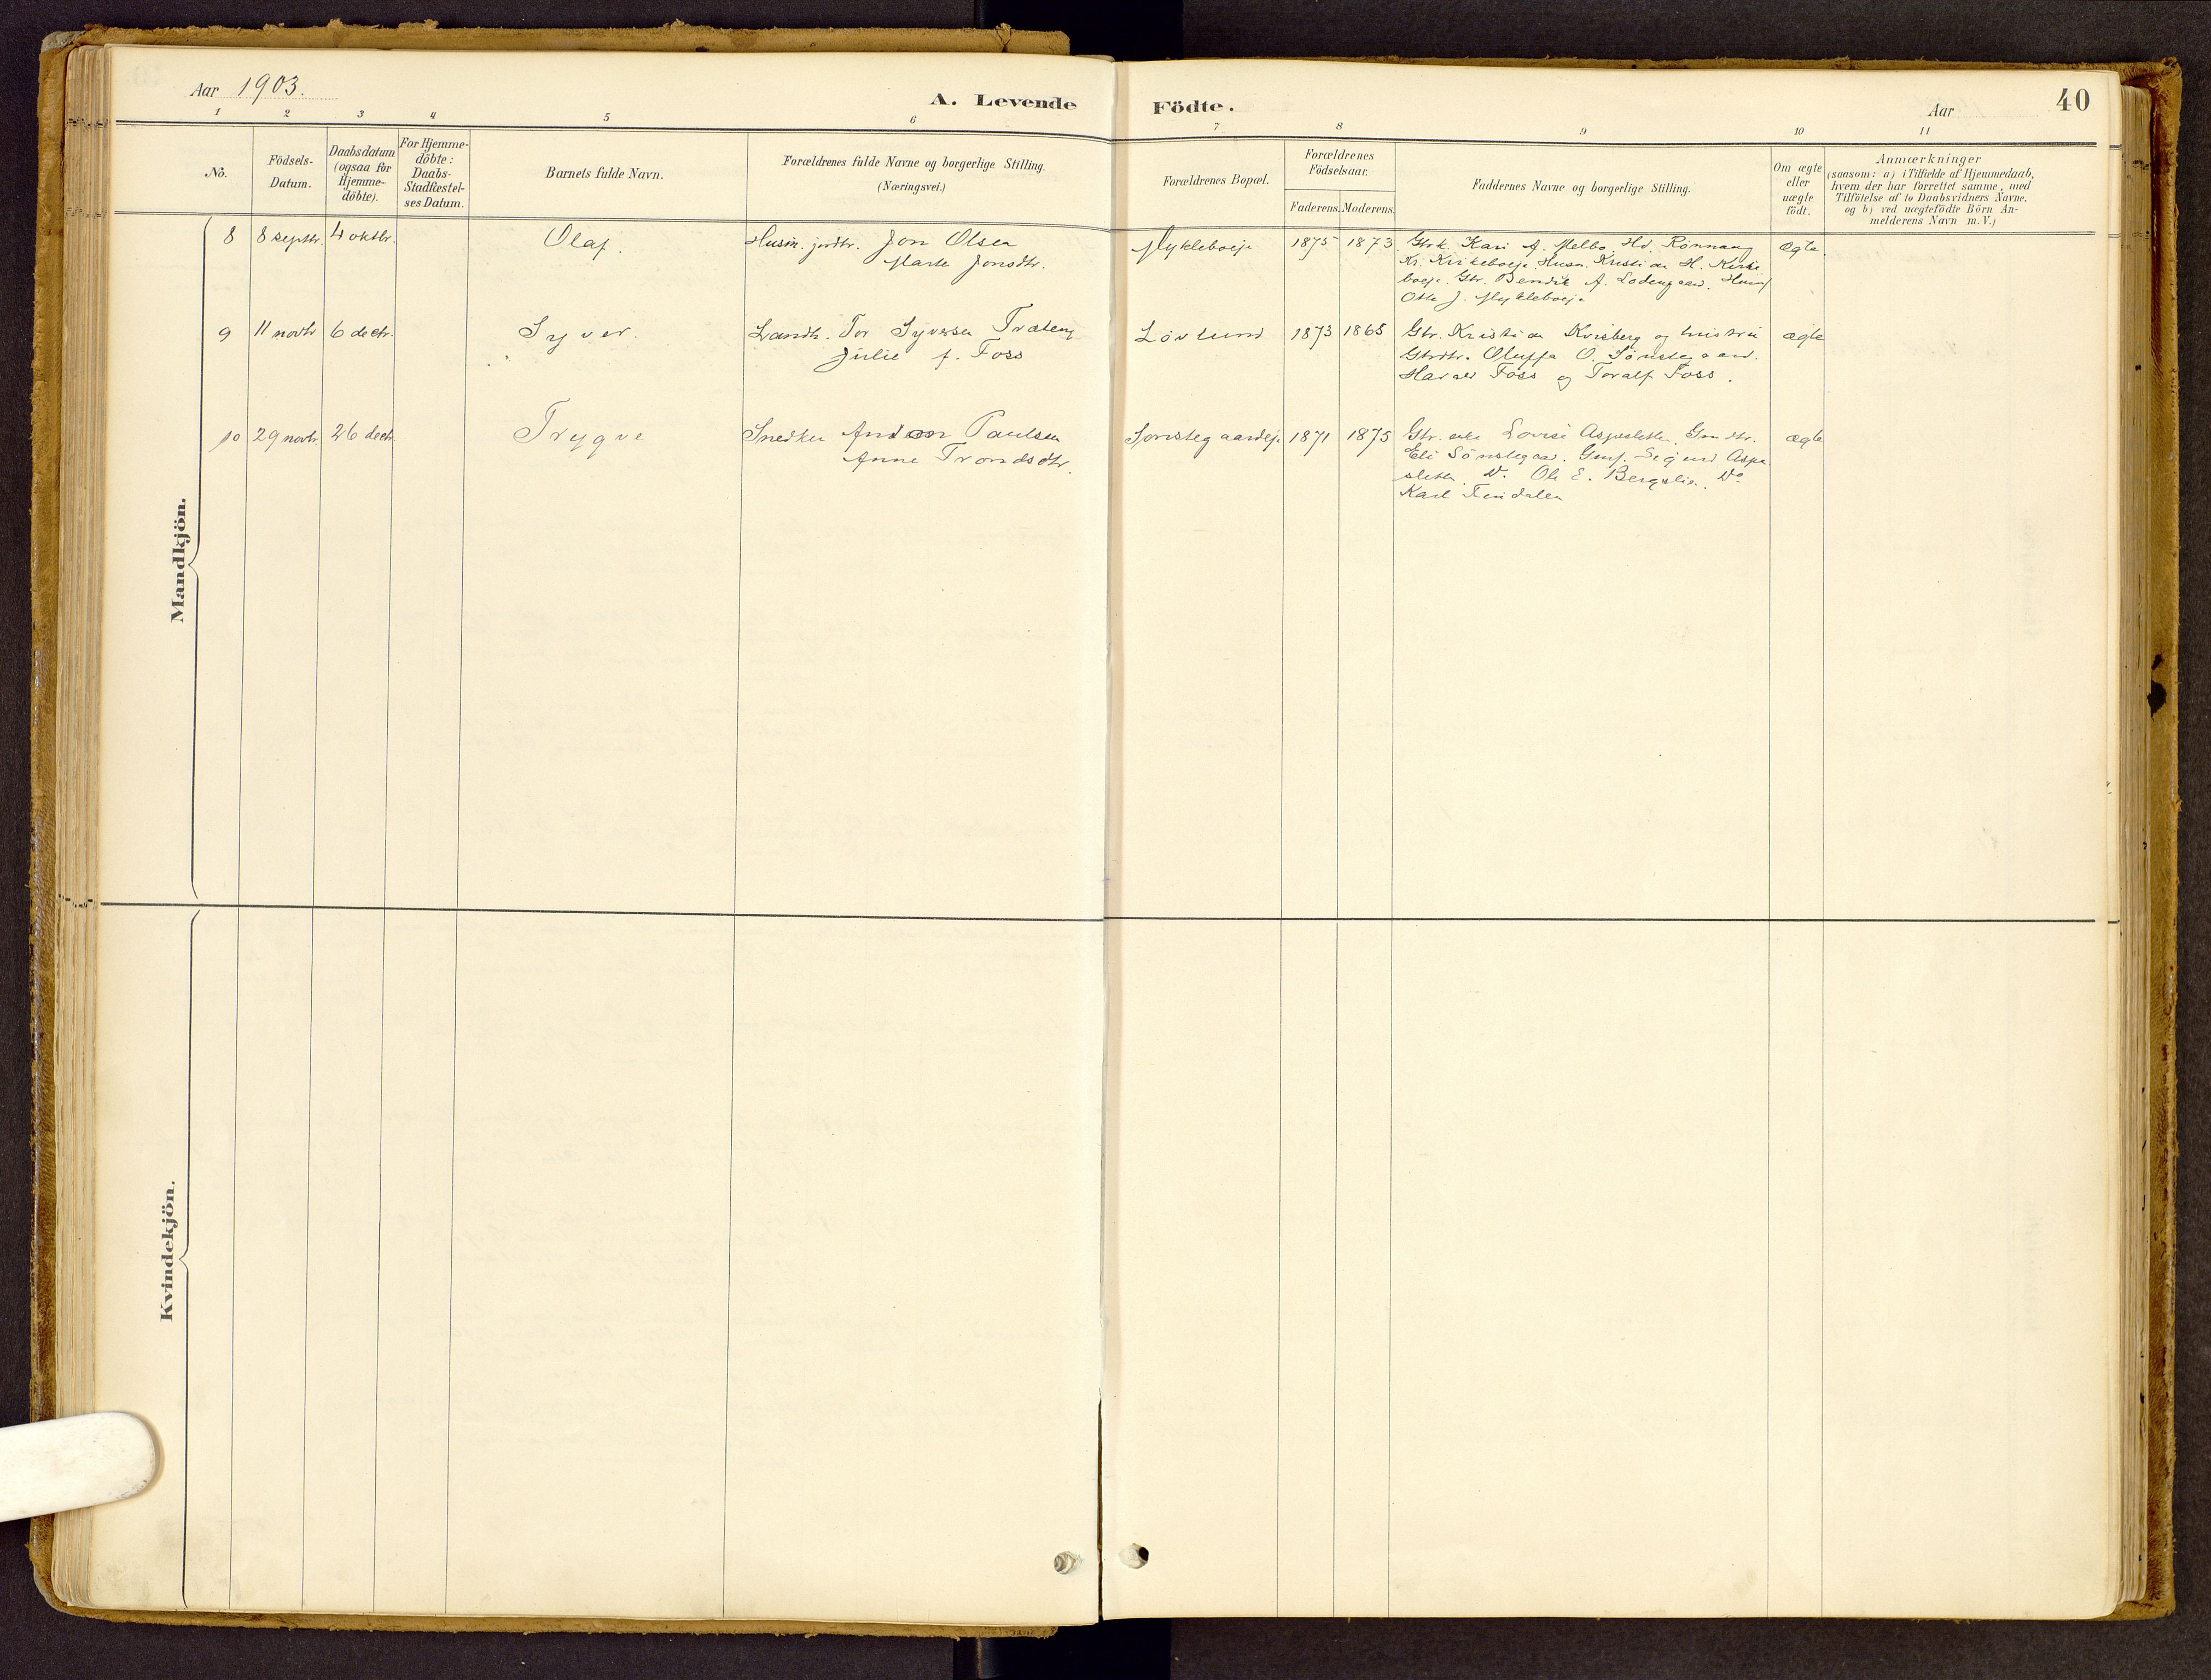 Aar 1903.
A. Levende Födte.
Aar
40
1 2 3 4 5 6 7 8 9 10 11
No.
Födsels-Datum.
Daabsdatum (ogsaa for Hjemme-döbte).
For Hjemme-döbte: Daabs-Stadfæstel-ses Datum.
Barnets fulde Navn.
Forældrenes fulde Navne og borgerlige Stilling.
(Næringsvei.)
Forældrenes Bopæl.
Forældrenes Födselsaar.
Faderens. Moderens.
Faddernes Navne og borgerlige Stilling.
Om ægte eller uægte födt.
Anmærkninger
(saasom: a) i Tilfælde af Hjemmedaab,
hvem der har forrettet samme, med
Tilföielse af to Daabsvidners Navne,
og b) ved uægtefödte Börn An-
melderens Navn m.V.)
Mandkjön.
8 8 septbr. 4 oktbr. Olaf. Husm. jordbr. Jon Olsen Mykleboeje 1875 1873 Gbrk. Kari A. Melbo. Hd. Rønnaug ægte
Marte Jonsdtr. Kr. Kirkeboeje. Husm. Kristian H. Kirke
boeje. Gbr. Bendik A. Lodengaard. Husm
Otto J. Mykleboeje
9 11 novbr 6 decbr. Syver. Landh. Tor Syversen Træteng Løvlund 1873 1865 Gbr. Kristian Kvisberg og hustru ægte
Julie f. Foss Gbrdtr. Oluffa O. Sønstegaard.
Harald Foss og Toralf Foss.
10 29 novbr. 26 decbr. Trygve Snedker Paulsen Sønstegaardeje 1871 1875 Gbr. enke Lovise Aspesletten. Gmdtr. ægte
Anne Trondsdtr. Eli Sønstegaard. Gmf. Sigurd Aspe
sletten. Do. Ole E. Bergslien. Do
Karl Tendalen
Kvindekjön.